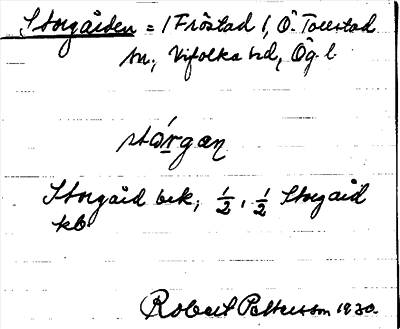 Storgården = 1 Fröstad 1, Ö. Tollstad
sn, Vifolka hd, Ög. l.
stórgan
Storgård bek; 1/2, 1/2 Storgård
kb
Robert Petterson 1930.